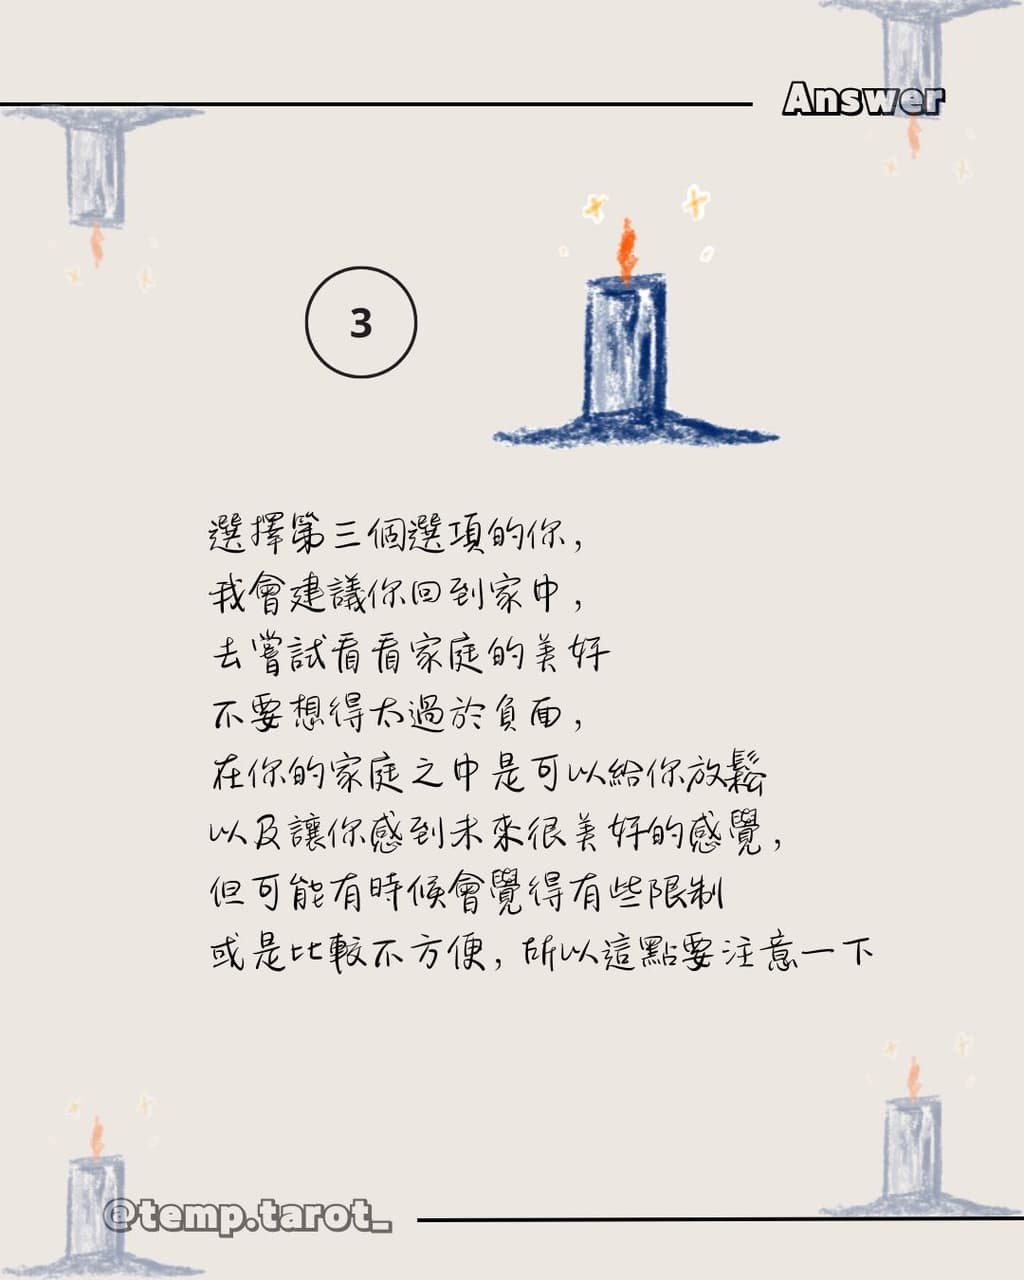 Answer
3
選擇第三個選項的你，
我會建議你回到家中，
去嘗試看看家庭的美好
不要想得太過於負面，
在你的家庭之中是可以給你放鬆
以及讓你感到未來很美好的感覺，
但可能有時候會覺得有些限制
或是比較不方便，所以這點要注意一下
@temp.tarot_